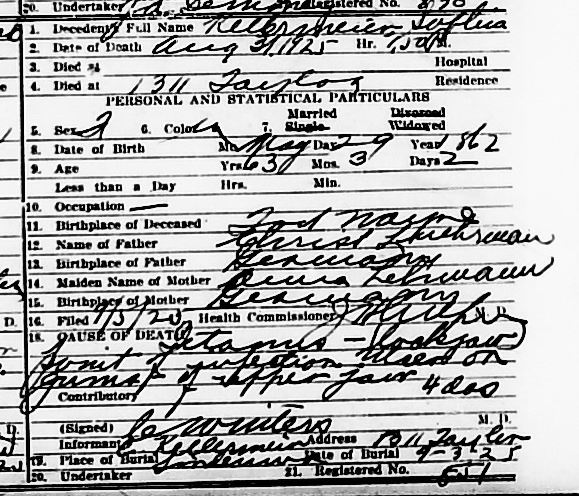 20. Undertaker Registered No.
1. Decedent's Full Name Kellermeier, Sophia
2. Date of Death Aug 31, 1925 Hr. 1:50 P.M.
3. Died at Hospital
4. Died at 1311 Taylor Residence
PERSONAL AND STATISTICAL PARTICULARS
Married Divorced
5. Sex F 6. Color W 7. Single Widowed
8. Date of Birth Mo. May Day 29 Year 1862
9. Age Yrs. 63 Mos. 3 Days 2
Less than a Day Hrs. Min.
10. Occupation —
11. Birthplace of Deceased Fort Wayne
12. Name of Father Christ
13. Birthplace of Father Germany
14. Maiden Name of Mother Lehmann
15. Birthplace of Mother Germany
16. Filed Health Commissioner
18. CAUSE OF DEATH Tetanus - Lockjaw
infection
of upper jaw 4 das
Contributory
(Signed) M. D.
Informant Kellermeier Address 1311 Taylor
19. Place of Burial Date of Burial 9-3-25
20. Undertaker 21. Registered No. 851